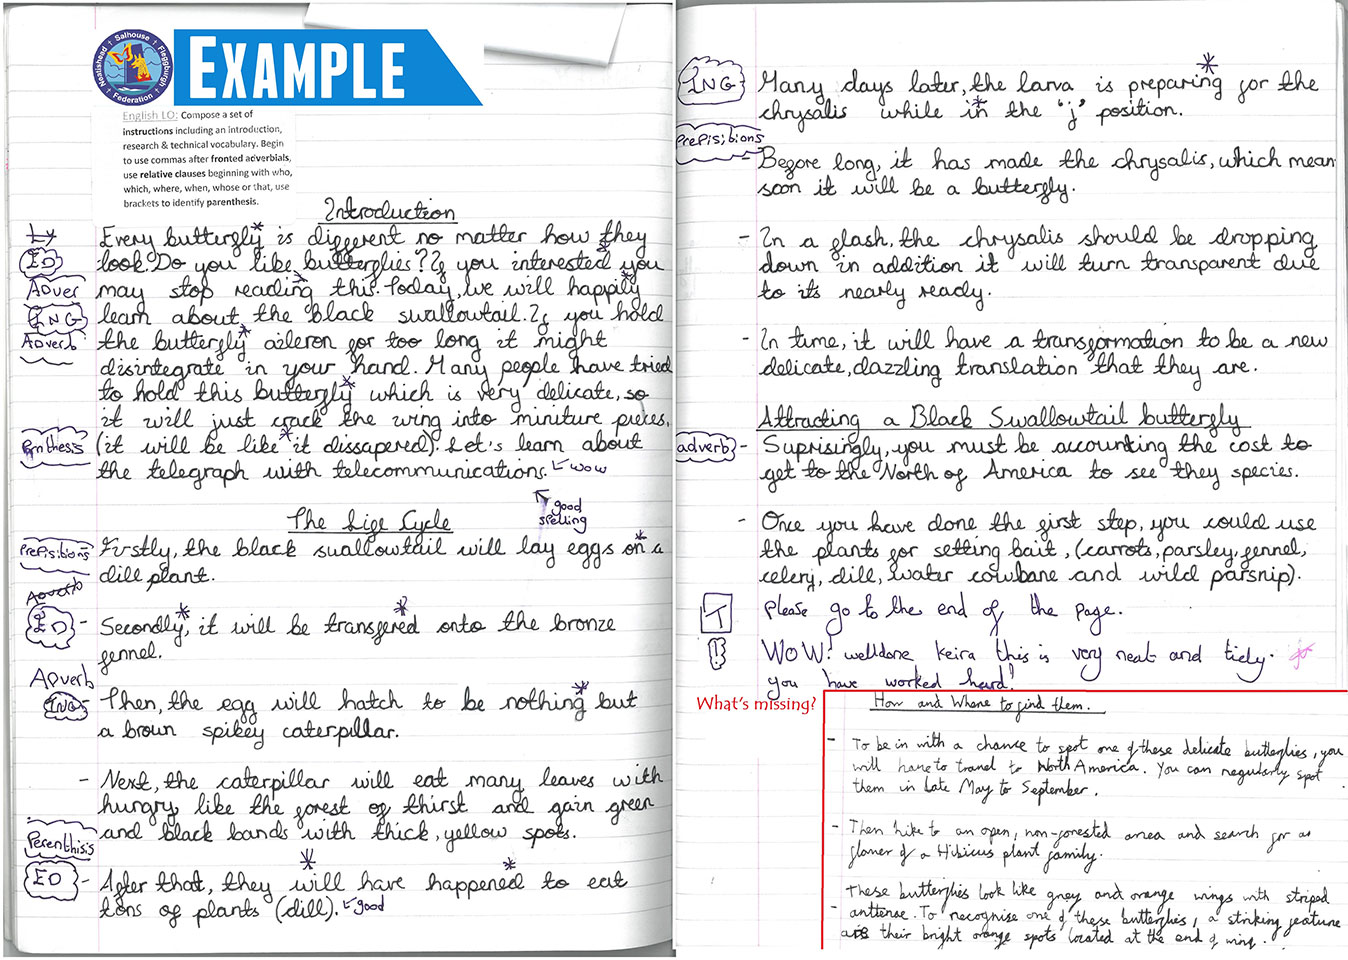 Neatishead † Salhouse † Fleggburgh
Federation
EXAMPLE
English LO: Compose a set of
instructions including an introduction,
research & technical vocabulary. Begin
to use commas after fronted adverbials,
use relative clauses beginning with who,
which, where, when, whose or that, use
brackets to identify parenthesis.
Introduction
Ly
Every butterfly is different no matter how they
ED
look. Do you like butterflies? If you interested you
Adver
may stop reading this. Today, we will happily
ING
learn about the black swallowtail. If you hold
Adverb
the butterfly aileron for too long it might
disintegrate in your hand. Many people have tried
to hold this butterfly which is very delicate, so
it will just crack the wing into miniture pieces.
Prnthesis
(it will be like it dissapered). Let's learn about
the telegraph with telecommunications. wow
good
spelling
The Life Cycle
Prepisibions
Firstly, the black swallowtail will lay eggs on a
dill plant.
Adverb
ED
Secondly, it will be transfered onto the bronze
fennel.
Adverb
ING
Then, the egg will hatch to be nothing but
a brown spikey caterpillar.
- Next, the caterpillar will eat many leaves with
hungry like the forest of thirst and gain green
and black bands with thick, yellow spots.
Perenthisis
ED
- After that, they will have happened to eat
tons of plants (dill). good
ING
Many days later, the larva is preparing for the
chrysalis while in the 'j' position.
Prepisibions
- Before long, it has made the chrysalis, which mean
soon it will be a butterfly.
- In a flash, the chrysalis should be dropping
down in addition it will turn transparent due
to its nearly ready.
- In time, it will have a transformation to be a new
delicate, dazzling translation that they are.
Attracting a Black Swallowtail butterfly
adverb
- Suprisingly, you must be accounting the cost to
get to the North of America to see they species.
- Once you have done the first step, you could use
the plants for setting bait, (carrots, parsley, fennel,
celery, dill, water cowbane and wild parsnip).
T
Please go to the end of the page.
!
WOW! welldone Keira this is very neat and tidy.
you have worked hard!
What's missing?
How and Where to find them.
- To be in with a chance to spot one of these delicate butterflies, you
will have to travel to North America. You can regularly spot
them in late May to September.
- Then hike to an open, non-forested area and search for a
flower of a Hibicus plant family.
These butterflies look like grey and orange wings with striped
- anttenae. To recognise one of these butterflies, a striking feature
is their bright orange spots located at the end of wing.